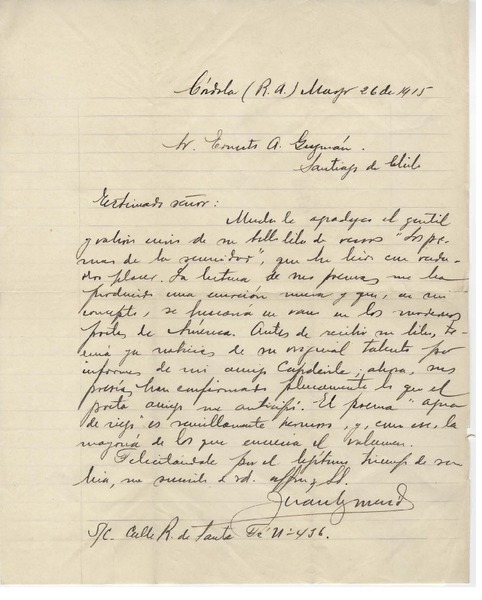 Córdoba (R. A.) Mayo 26 de 1915
Sr. Ernesto A. Guzmán.
Santiago de Chile
Estimado señor:
Mucho le agradezco el gentil
y valioso envío de su bello libro de versos "Los poe-
mas de la serenidad", que he leído con verda-
dero placer. La lectura de sus poemas me ha
producido una emoción nueva y que, en mi
concepto, se buscaría en vano en los modernos
poetas de América. Antes de recibir su libro, te-
nía ya noticias de su original talento por
informes de mi amigo Capdevila; ahora, sus
poesías han confirmado plenamente lo que el
poeta amigo me anticipó. El poema "agua
de riego" es sencillamente hermoso, y, como ese, la
mayoría de los que encierra el volumen.
Felicitándole por el legítimo triunfo de su
libro, me suscribo de Vd. affmo y SS.
S/C. Calle R. de Santa Fé Nº 436.